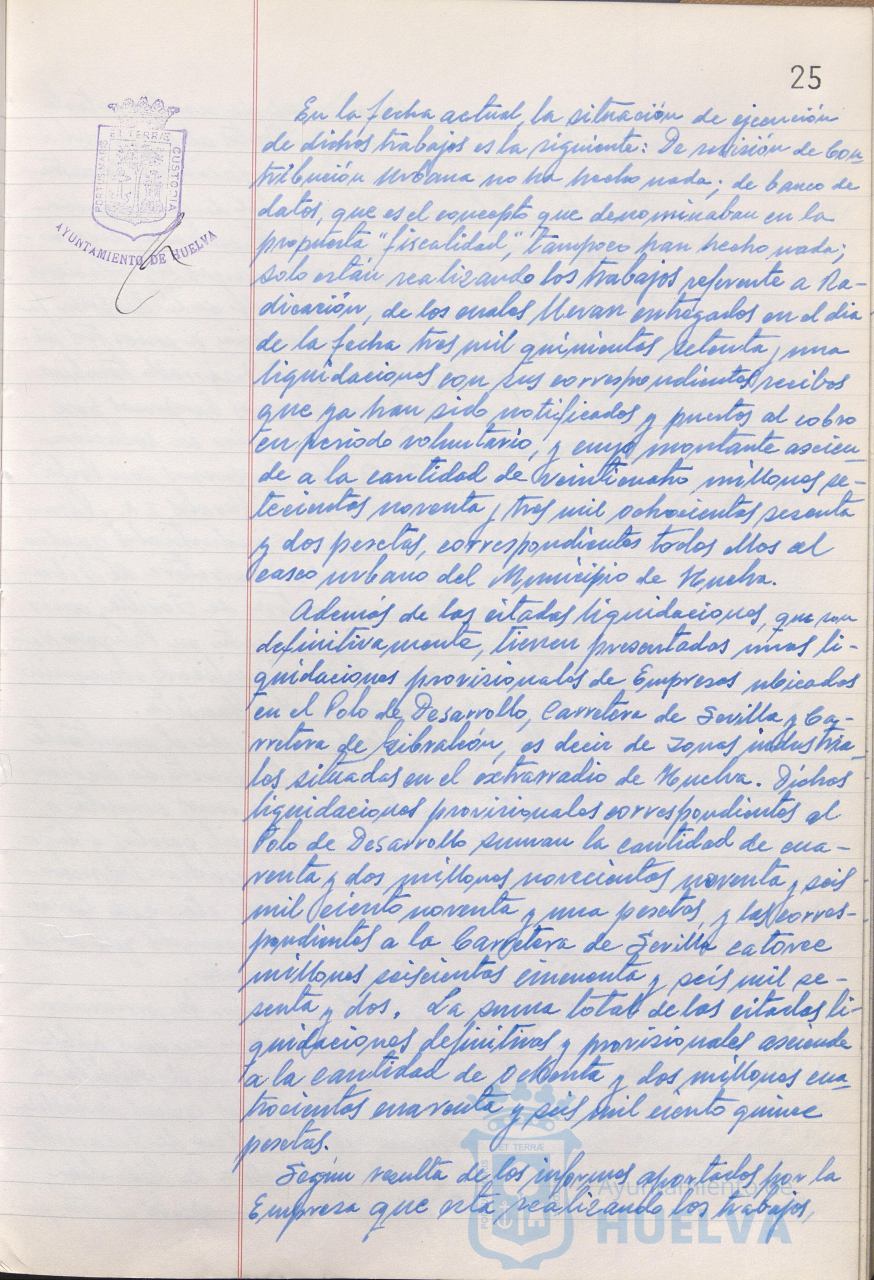 25
PORTUS MARIS ET TERRÆ CUSTODIA
AYUNTAMIENTO DE HUELVA
En la fecha actual, la situación de ejecución
de dichos trabajos es la siguiente: De revisión de Con-
tribución Urbana no ha hecho nada; de banco de
datos, que es el concepto que denominaban en la
propuesta "fiscalidad", tampoco han hecho nada;
solo están realizando los trabajos referente a Ra-
dicación, de los cuales llevan entregados en el dia
de la fecha tres mil quinientas setenta y una
liquidaciones con sus correspondientes recibos
que ya han sido notificados y puestos al cobro
en periodo voluntario, y cuyo montante ascien-
de a la cantidad de veinticuatro millones se-
tecientas noventa y tres mil ochocientas sesenta
y dos pesetas, correspondientes todos ellos al
casco urbano del Municipio de Huelva.
Además de las citadas liquidaciones, que son
definitivamente, tienen presentadas unas li-
quidaciones provisionales de Empresas ubicadas
en el Polo de Desarrollo, Carretera de Sevilla y Ca-
rretera de Gibraleón, es decir de zonas industria-
les situadas en el extrarradio de Huelva. Dichas
liquidaciones provisionales correspondientes al
Polo de Desarrollo suman la cantidad de cua-
renta y dos millones novecientas noventa y seis
mil ciento noventa y una pesetas, y las corres-
pondientes a la Carretera de Sevilla catorce
millones seiscientas cincuenta y seis mil se-
senta y dos. La suma total de las citadas li-
quidaciones definitivas y provisionales asciende
a la cantidad de ochenta y dos millones cua-
trocientas cuarenta y seis mil ciento quince
pesetas.
Según resulta de los informes aportados por la
Empresa que está realizando los trabajos,
ET TERRÆ
Ayuntamiento de
HUELVA